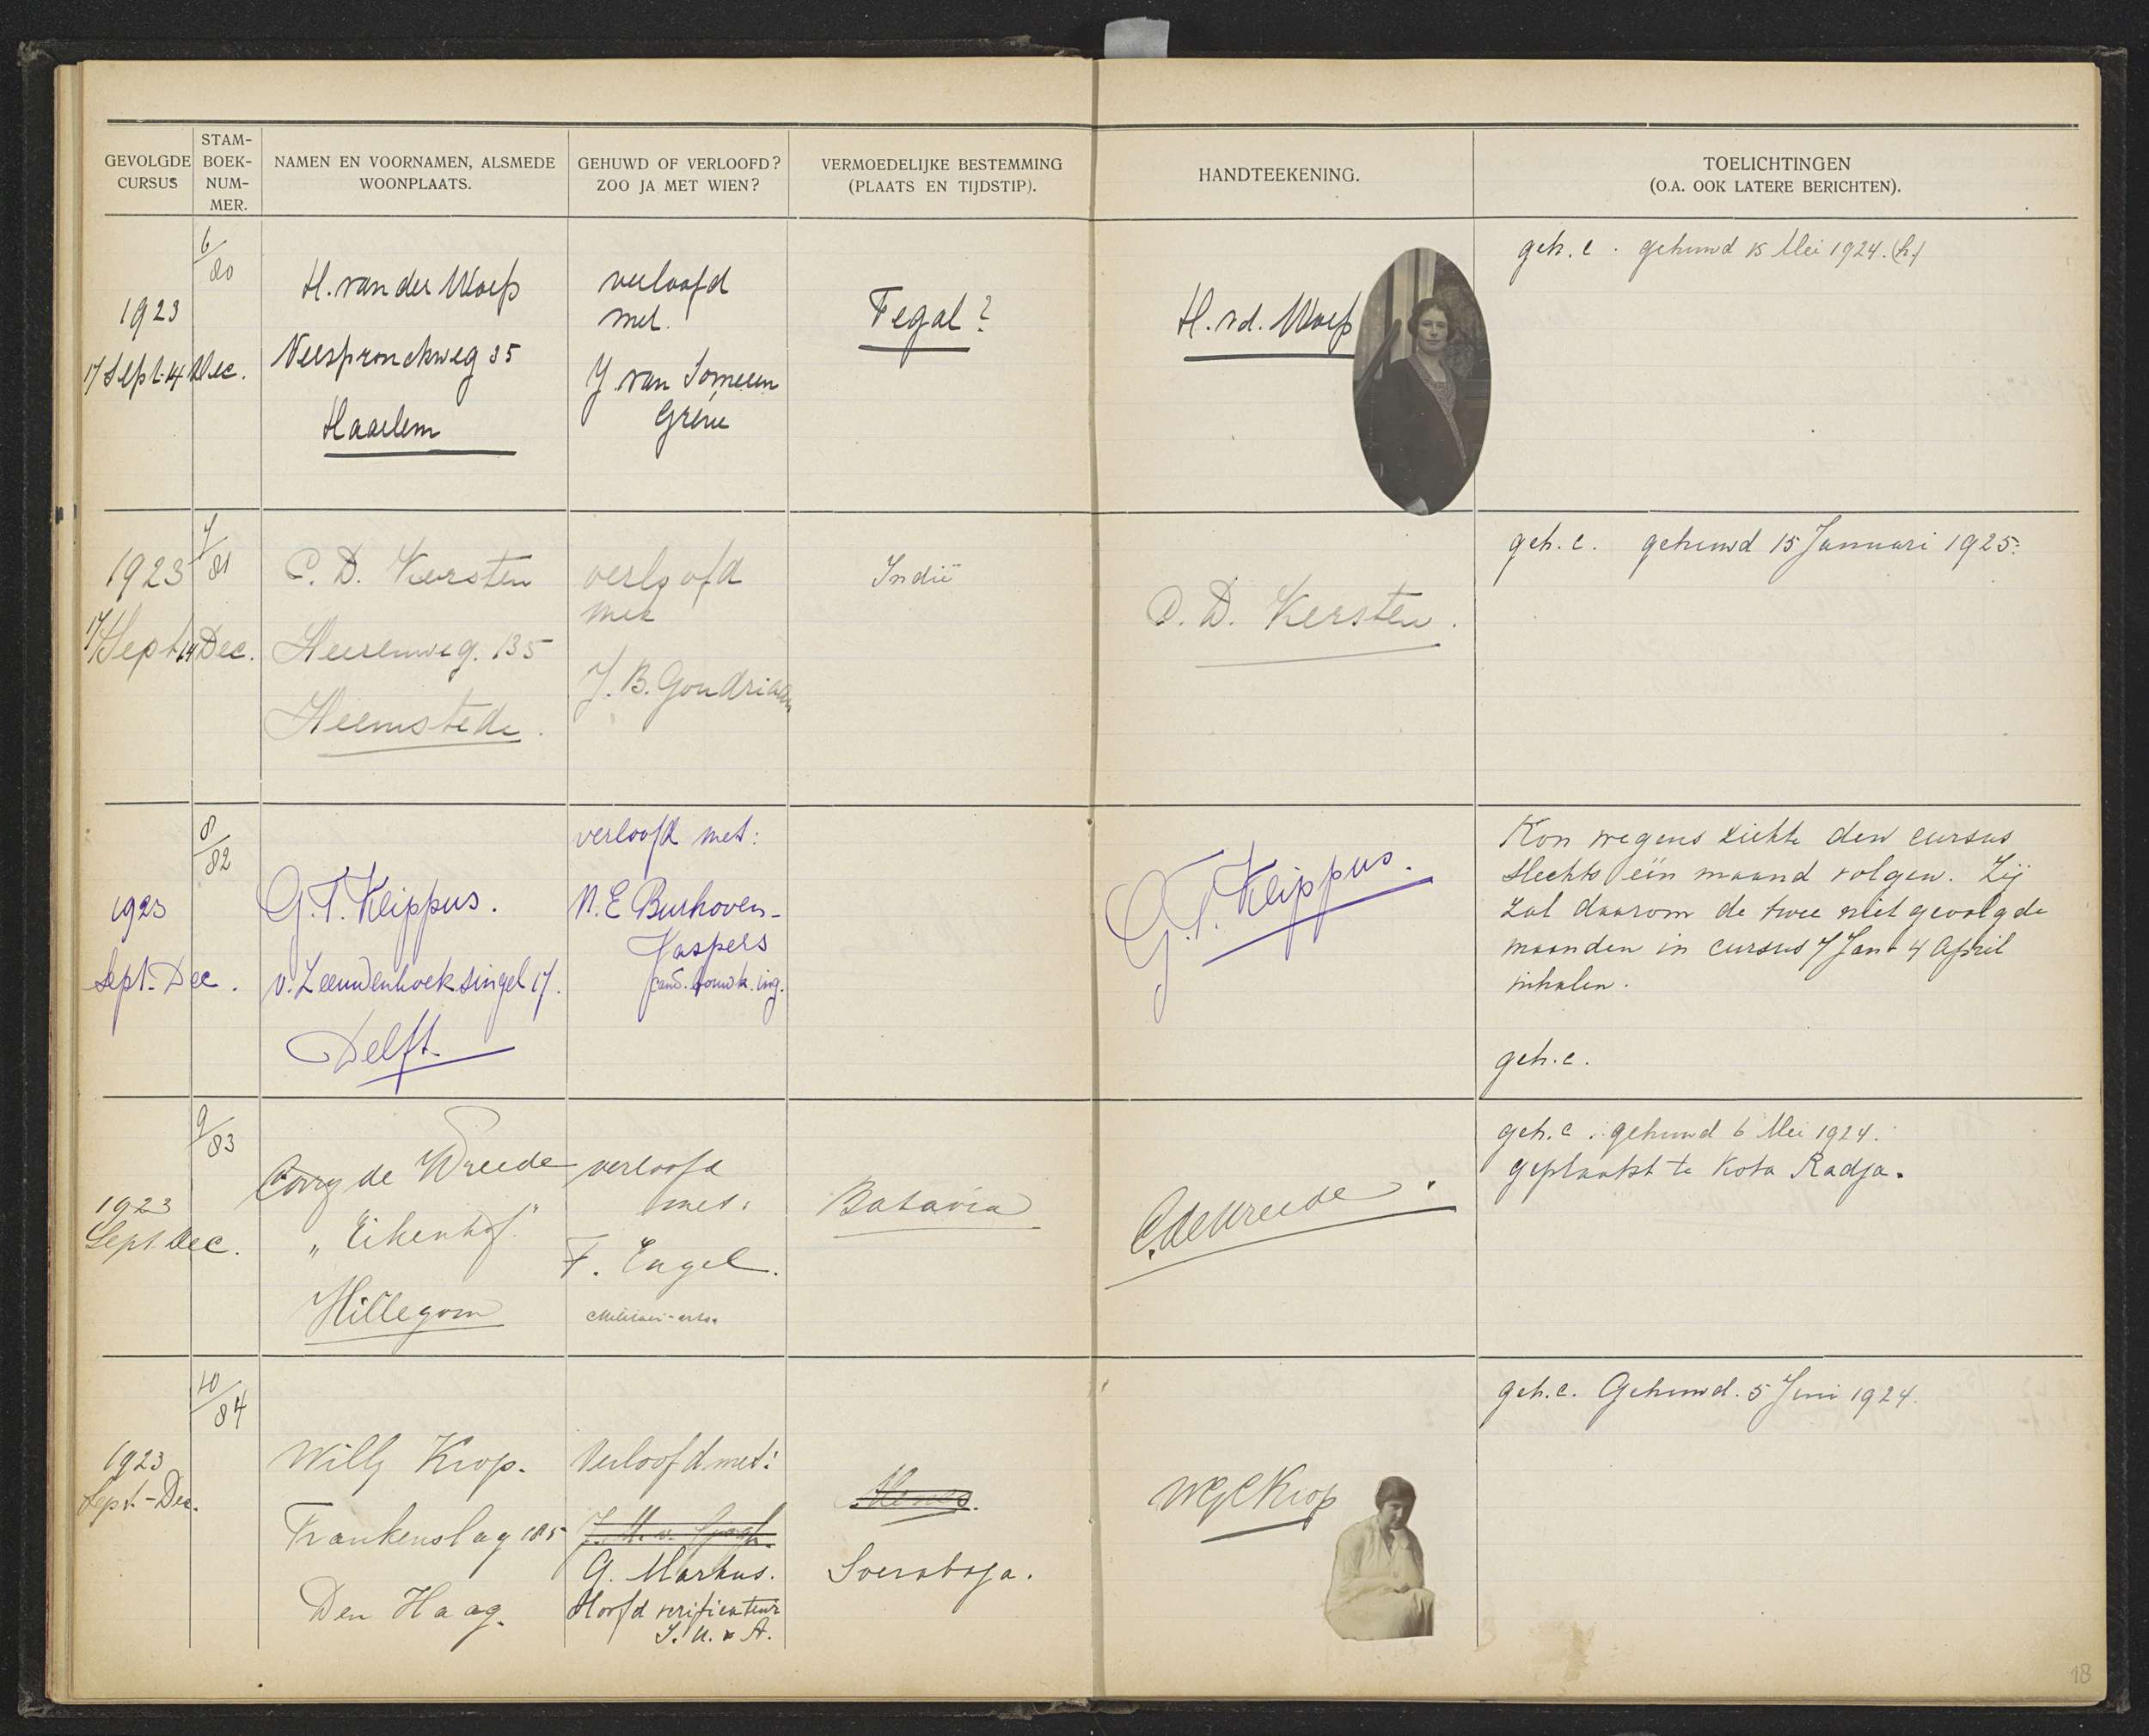 GEVOLGDE CURSUS
STAM-BOEK-NUM-MER.
NAMEN EN VOORNAMEN, ALSMEDE WOONPLAATS.
GEHUWD OF VERLOOFD? ZOO JA MET WIEN?
VERMOEDELIJKE BESTEMMING (PLAATS EN TIJDSTIP).
HANDTEEKENING.
TOELICHTINGEN (O.A. OOK LATERE BERICHTEN).
6/80
1923
17 Sept-14 Dec.
H. van der Woerp
Verspronckweg 35
Haarlem
verloofd
met.
J. van Someren
Gréve
Tegal?
H. v d. Woerp
geh. c. gehuwd 15 Mei 1924. (h.)
7/81
1923
17 Sept 14 Dec.
C. D. Kersten
Heerenweg. 135
Heemstede.
verloofd
met
J. B. Goudriaan
Indië
C. D. Kersten.
geh. c. gehuwd 15 Januari 1925.
8/82
1923
Sept.-Dec.
G. T. Kleippus.
v. Leeuwenhoeksingel 17.
Delft
verloofd met:
N. E. Burhoven-
Jaspers
cand. bouwk. ing.
G. T. Kleippus.
Kon wegens ziekte den cursus
slechts één maand volgen. Zij
zal daarom de twee niet gevolgde
maanden in cursus 7 Jan - 4 April
inhalen.
geh. c.
9/83
1923
Sept. Dec.
Corry de Wreede
"Eikenhof."
Hillegom
verloofd
met:
F. Engel.
Militair-arts.
Batavia
C. de Wreede.
geh. c. gehuwd 6 Mei 1924.
geplaatst te Kota Radja.
10/84
1923
Sept.-Dec.
Willy Krop.
Frankenslag 185
Den Haag.
Verloofd met:
G. Markus.
Hoofd verificateur
I. U. & A.
Soerabaja.
Krop
geh. c. Gehuwd. 5 Juni 1924.
18